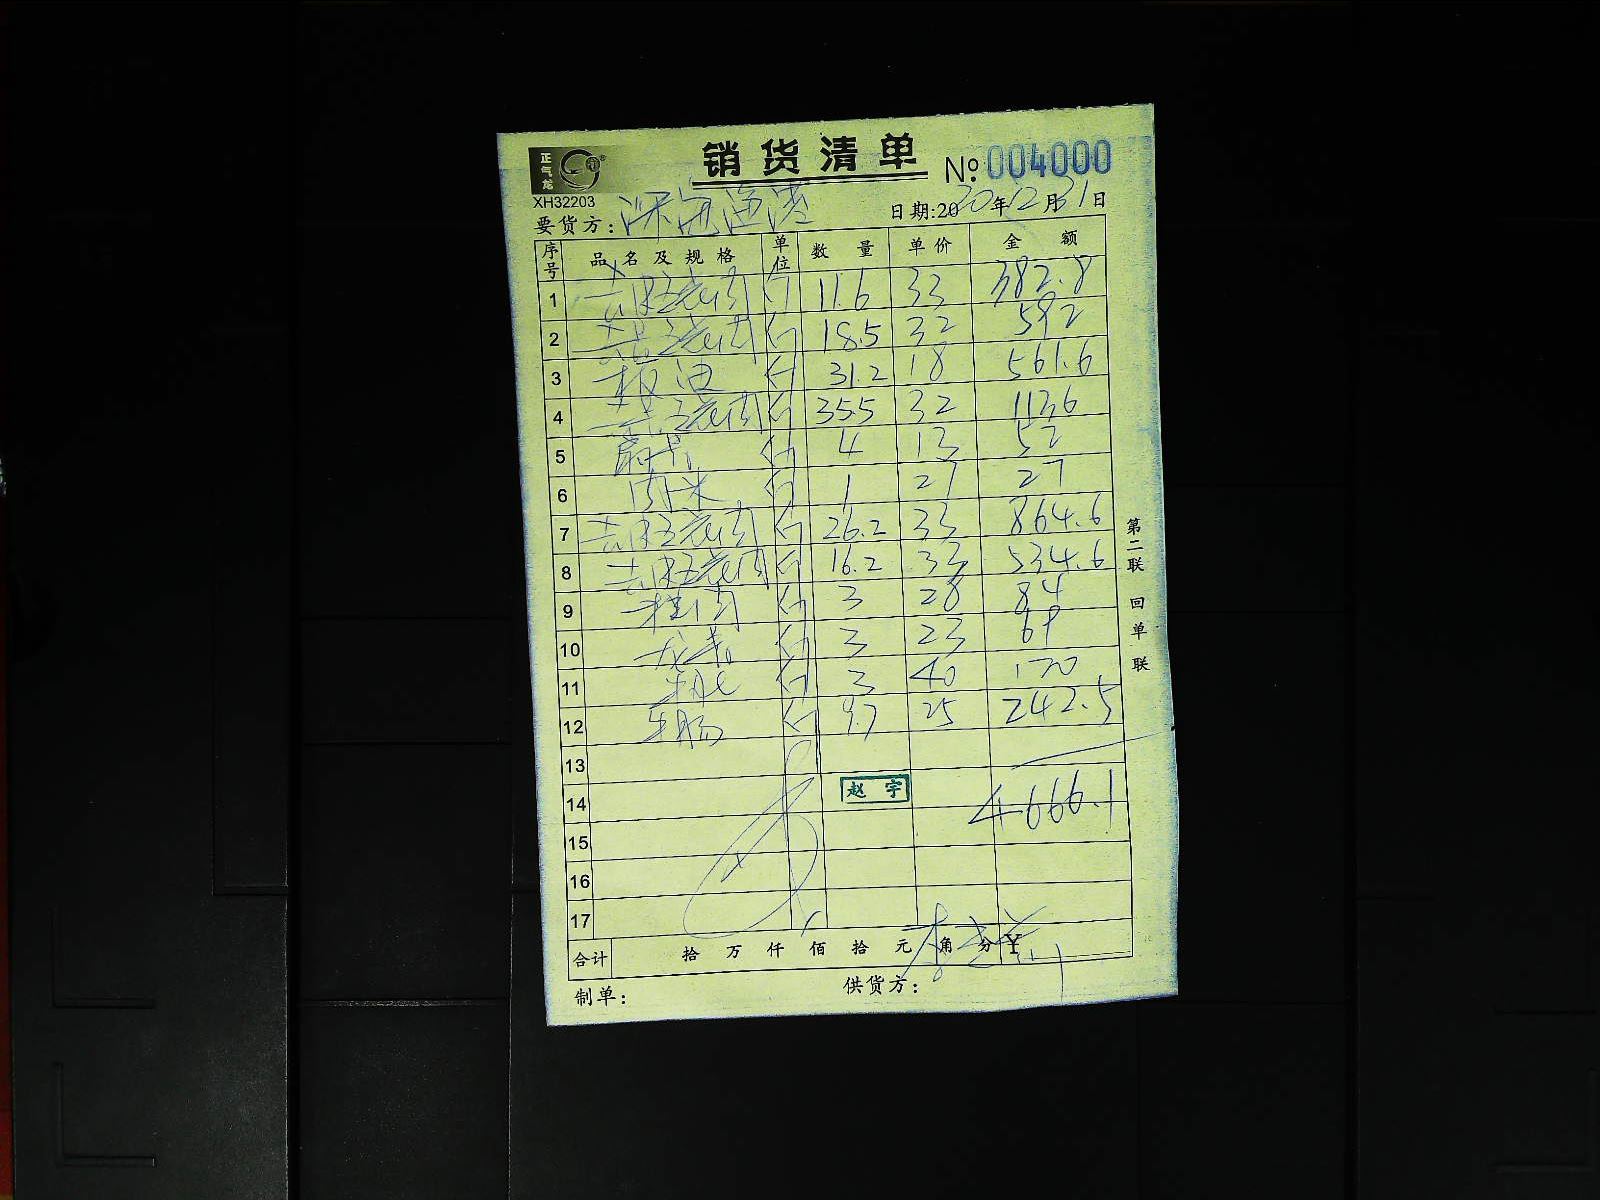 正气龙
销货清单 No. 004000
XH32203
要货方：深海渔港 日期:2020年12月31日
序号 品名及规格 单位 数量 单价 金额
1 去皮五花肉 斤 11.6 33 382.8
2 五花肉 斤 18.5 32 592
3 板油 斤 31.2 18 561.6
4 五花肉 斤 35.5 32 1136
5 斤 4 13 52
6 肉米 斤 1 27 27
7 去皮五花肉 斤 26.2 33 864.6
8 去皮五花肉 斤 16.2 33 534.6
9 肉 斤 3 28 84
10 龙骨 斤 3 23 69
11 斤 3 40 120
12 生肠 斤 9.7 25 242.5
13
14 赵宇 4666.1
15
16
17
合计 拾 万 仟 佰 拾 元 角 分 ¥
制单： 供货方：
第二联 回单联